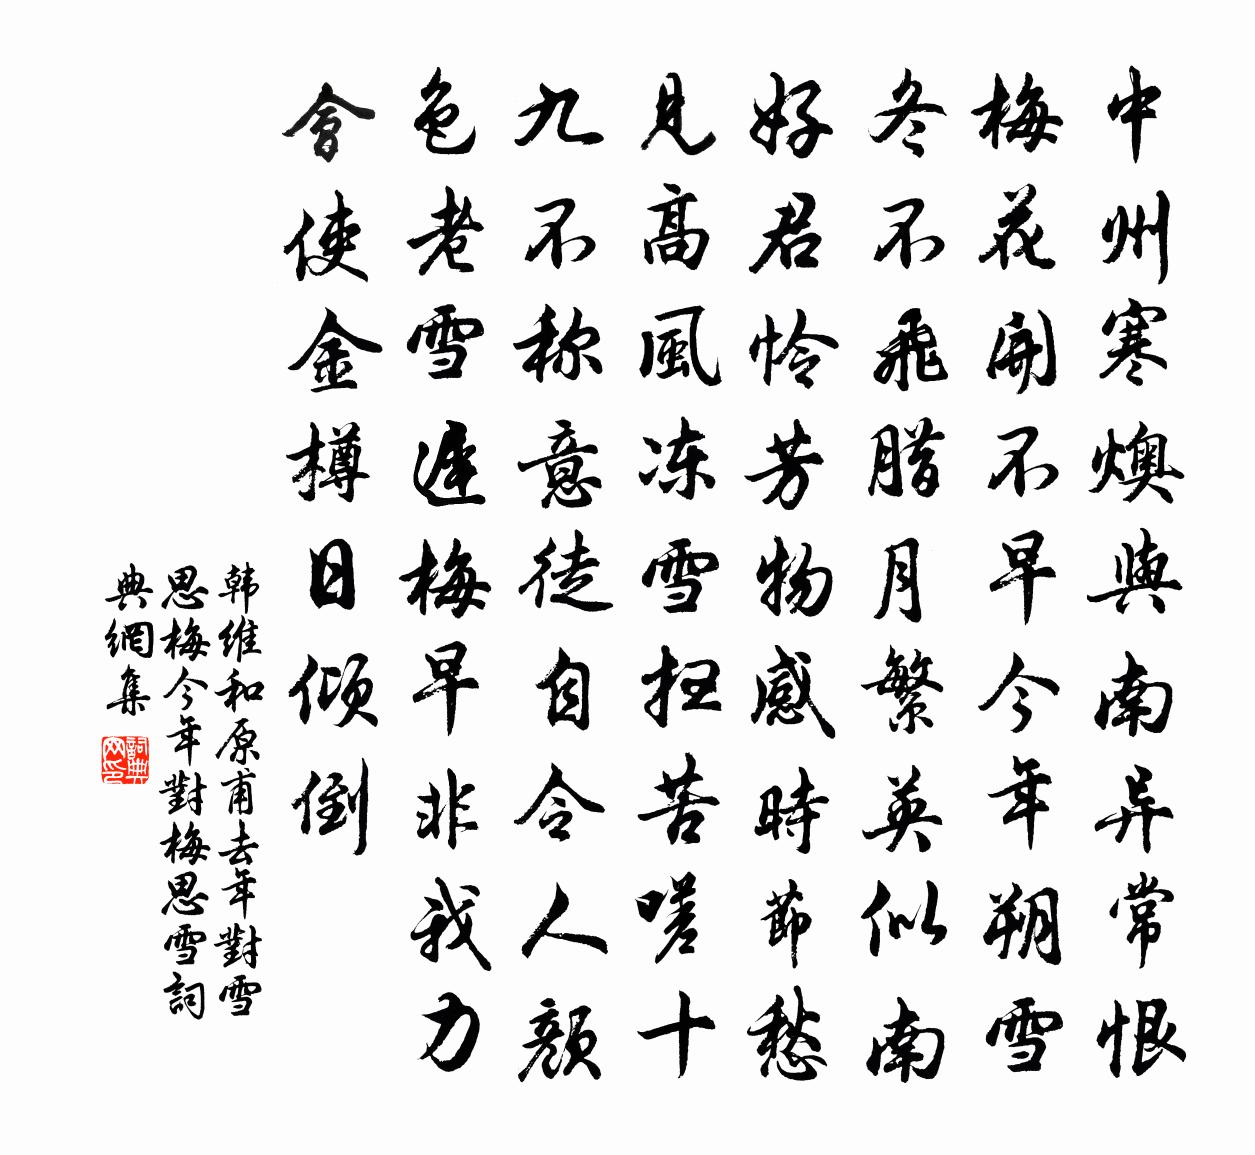 中州寒燠與南异常恨
梅花開不早今年朔雪
冬不飛腊月繁英似南
好君怜芳物感時節愁
見高風冻雪抂苦嗟十
九不称意徒自令人顔
色老雪遲梅早非我力
會使金樽日傾倒
韩维和原甫去年對雪
思梅今年對梅思雪詞
典網集
詞典网印